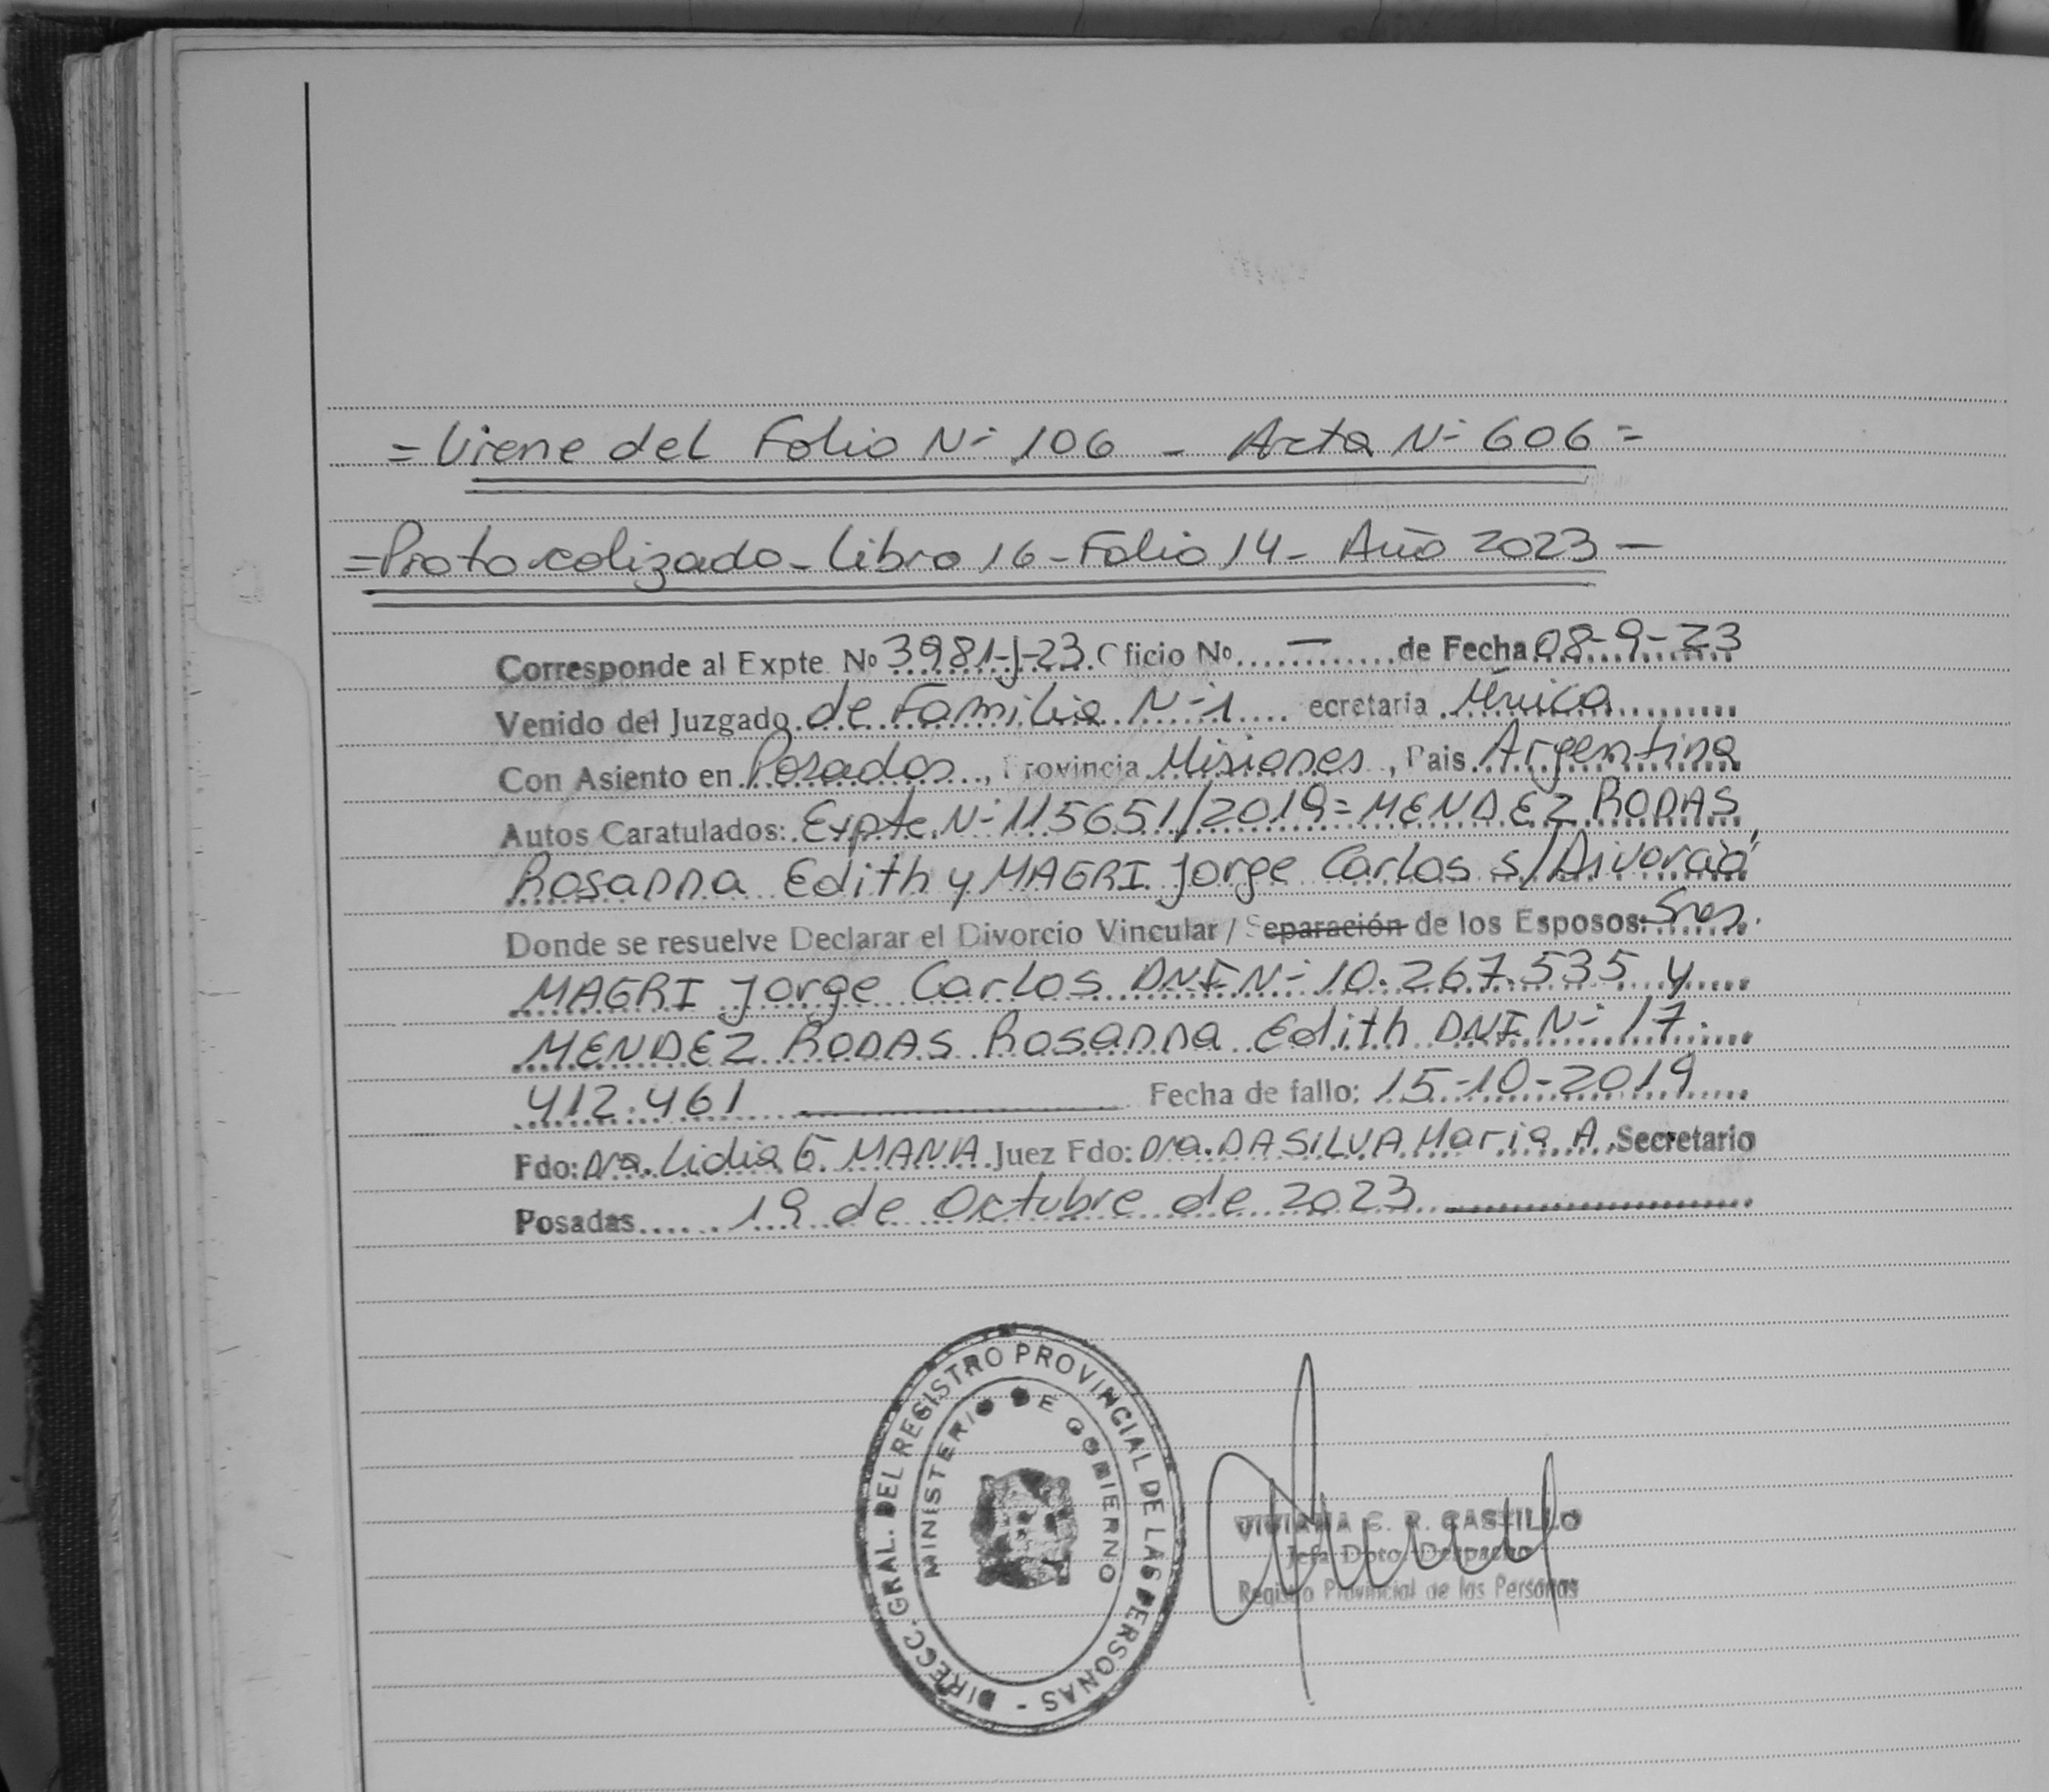 = Viene del Folio Nº 106 - Acta Nº 606 =
= Protocolizado - Libro 16 - Folio 14 - Año 2023 -
Corresponde al Expte. Nº 3981-J-23. Oficio Nº ..... - ..... de Fecha 08-9-23
Venido del Juzgado de Familia Nº 1 .... ecretaria Única
Con Asiento en Posadas, Provincia Misiones, Pais Argentina
Autos Caratulados: Expte. Nº 115651/2019 = MENDEZ RODAS
Rosanna Edith y MAGRI Jorge Carlos s/Divorcio
Donde se resuelve Declarar el Divorcio Vincular / Separación de los Esposos: Sres.
MAGRI Jorge Carlos DNI Nº 10.267.535 y
MENDEZ RODAS Rosanna Edith DNI Nº 17.
412.461 ——— Fecha de fallo: 15-10-2019
Fdo: Dra. Lidia G. MANA Juez Fdo: Dra. DA SILVA Maria A. Secretario
Posadas ..... 19 de Octubre de 2023
DIRECC. GRAL. DEL REGISTRO PROVINCIAL DE LAS PERSONAS -
MINISTERIO DE GOBIERNO
VIVIANA C. R. CASTILLO
Jefa Dpto. Despacho
Registro Provincial de las Personas